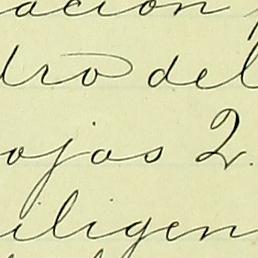 acion
dro del
ojas 2.
iligen